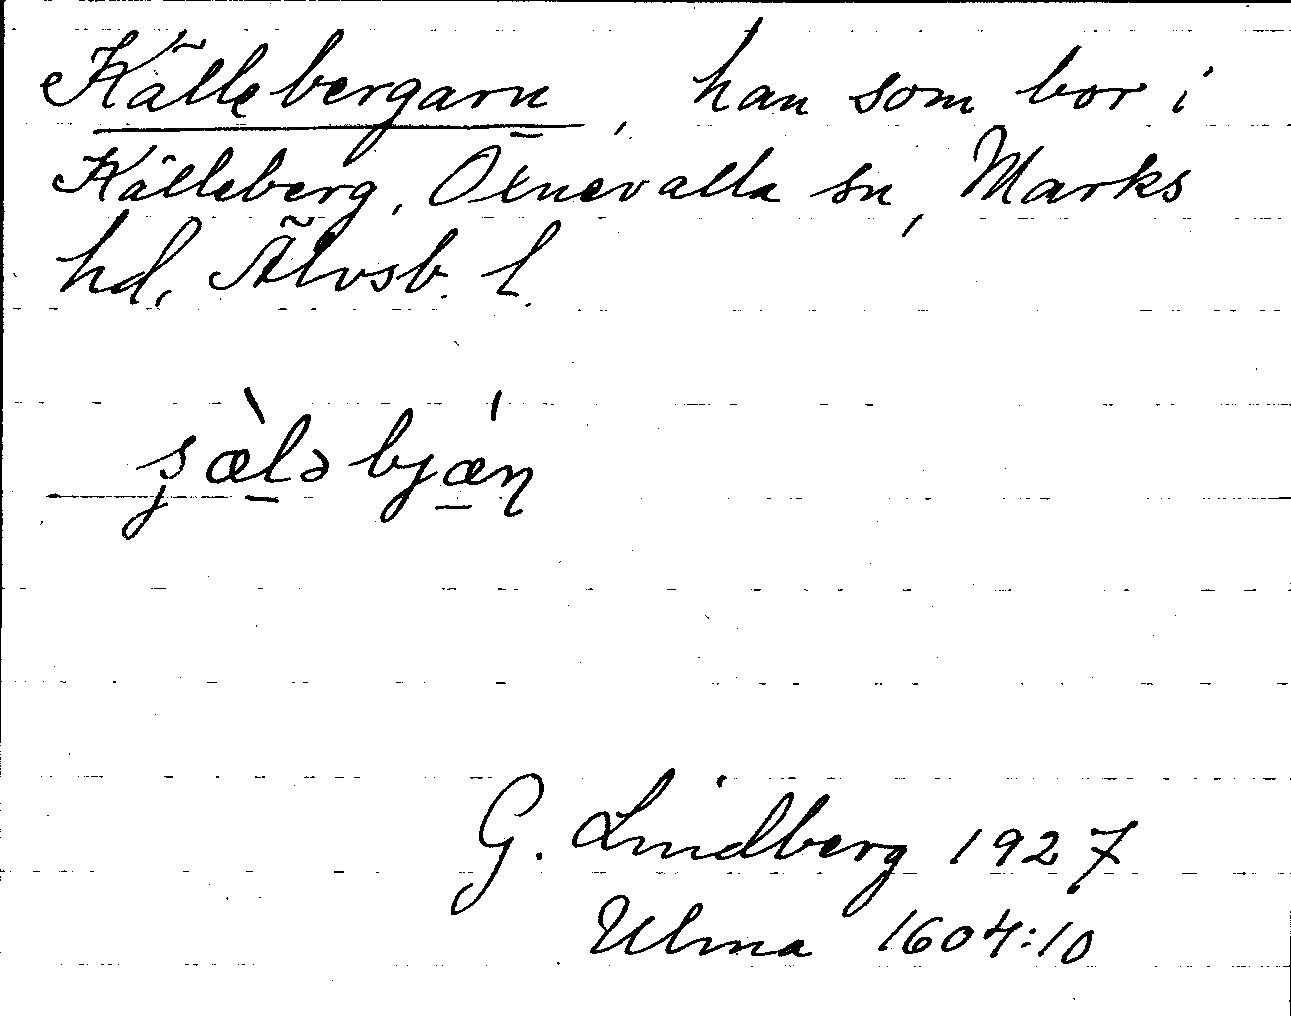 Källebergarn, han som bor i
Källeberg, Öxnevalla sn, Marks
hd, Älvsb. l.
s̡æ̀lə bjǽɳ
G. Lindberg 1927
Ulma 1604:10